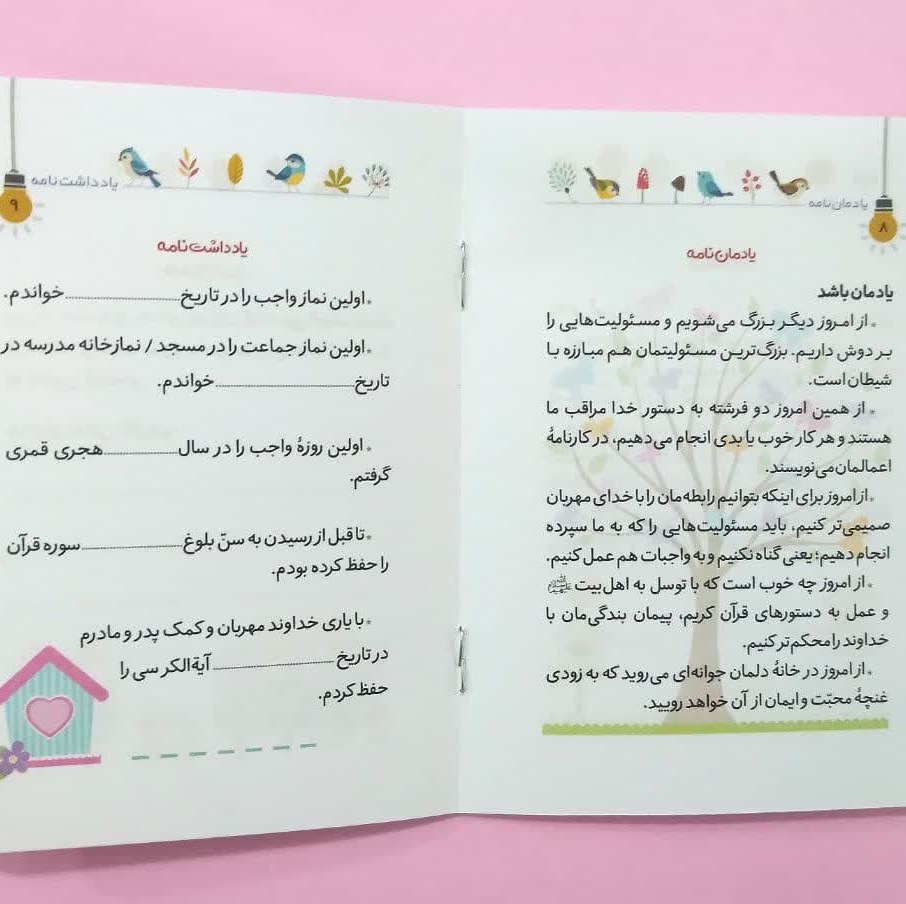 یادمان‌نامه
۸
یادمان‌نامه
یادمان باشد
از امروز دیگر بزرگ می‌شویم و مسئولیت‌هایی را
بر دوش داریم. بزرگ‌ترین مسئولیتمان هم مبارزه با
شیطان است.
از همین امروز دو فرشته به دستور خدا مراقب ما
هستند و هر کار خوب یا بدی انجام می‌دهیم، در کارنامهٔ
اعمالمان می‌نویسند.
از امروز برای اینکه بتوانیم رابطه‌مان را با خدای مهربان
صمیمی‌تر کنیم، باید مسئولیت‌هایی را که به ما سپرده
انجام دهیم؛ یعنی گناه نکنیم و به واجبات هم عمل کنیم.
از امروز چه خوب است که با توسل به اهل‌بیت
و عمل به دستورهای قرآن کریم، پیمان بندگی‌مان با
خداوند را محکم‌تر کنیم.
از امروز در خانهٔ دلمان جوانه‌ای می‌روید که به زودی
غنچهٔ محبّت و ایمان از آن خواهد رویید.
یادداشت‌نامه
۹
یادداشت‌نامه
اولین نماز واجب را در تاریخ ............ خواندم.
اولین نماز جماعت را در مسجد / نمازخانه مدرسه در
تاریخ ............ خواندم.
اولین روزهٔ واجب را در سال ............ هجری قمری
گرفتم.
تا قبل از رسیدن به سنّ بلوغ ............ سوره قرآن
را حفظ کرده بودم.
با یاری خداوند مهربان و کمک پدر و مادرم
در تاریخ ............ آیةالکرسی را
حفظ کردم.